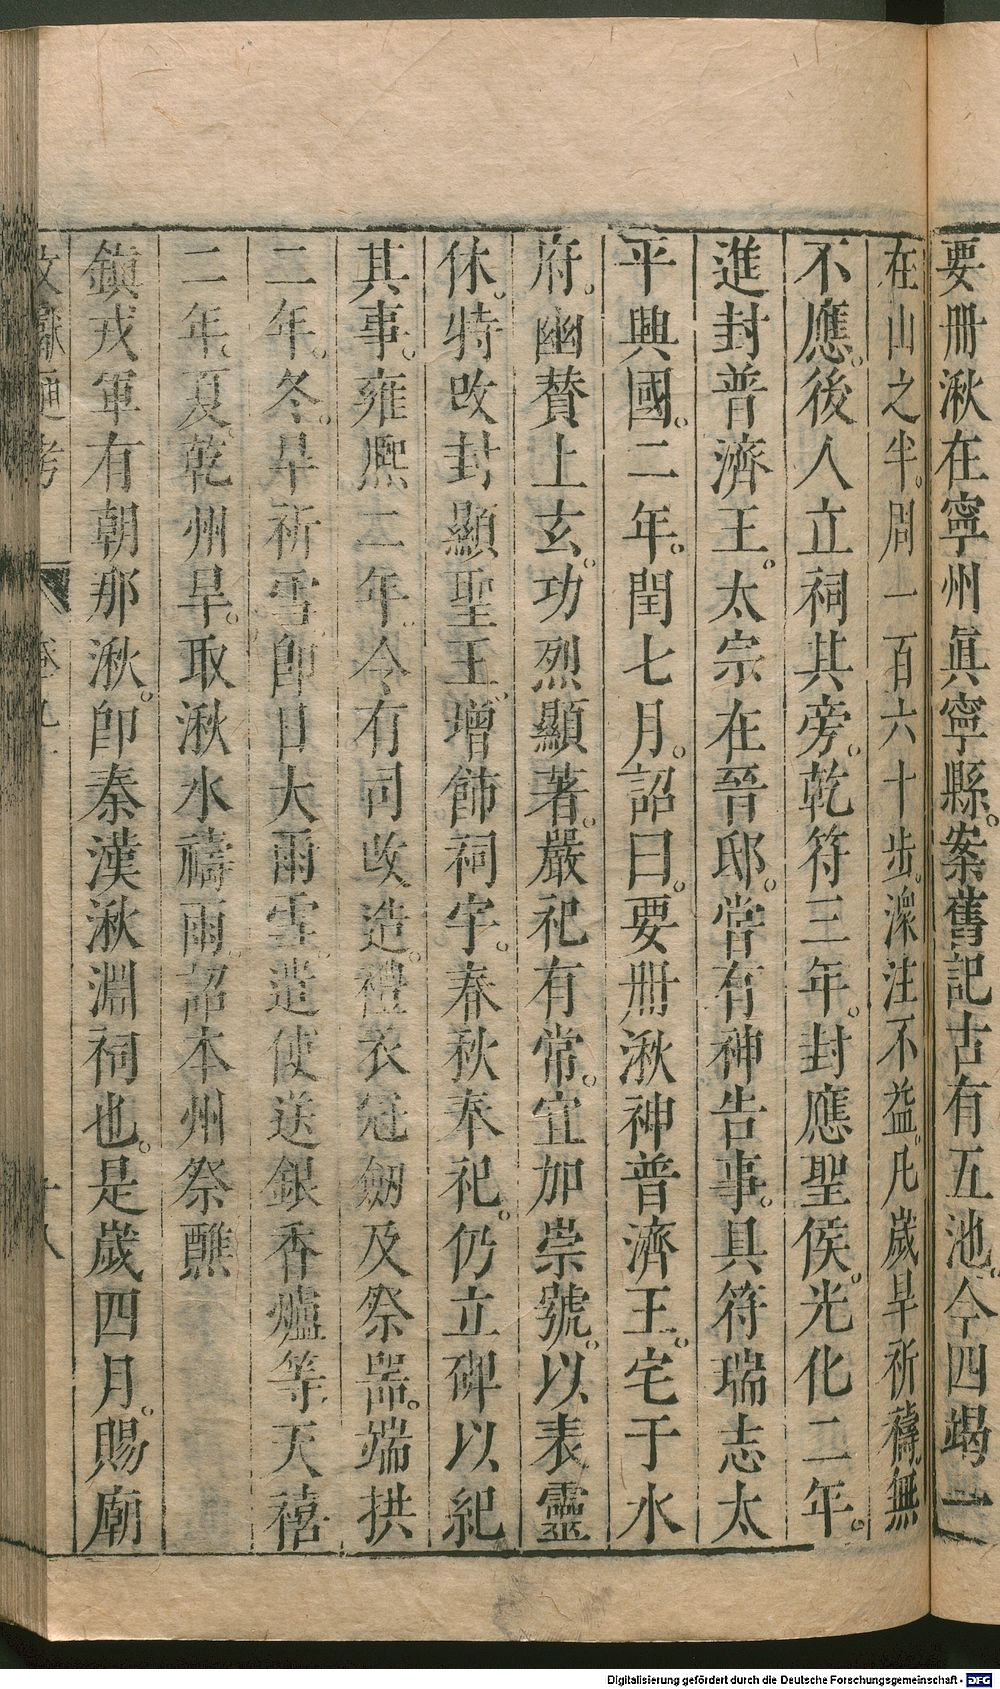 要册湫在寧州眞寧縣。案舊記古有五池。今四竭一
在山之半。周一百六十步。深注不益。凡歲旱祈禱。無
不應。後人立祠其旁。乾符三年。封應聖侯。光化二年。
進封普濟王。太宗在晉邸。嘗有神告事。具符瑞志太
平興國。二年。閏七月。詔曰。要册湫神普濟王。宅于水
府。幽贊上玄。功烈顯著。嚴祀有常。宜加崇號。以表靈
休。特改封顯聖王。增飾祠宇。春秋奉祀。仍立碑以紀
其事。雍熙二年。令有司改造。禮衣冠劔及祭噐。端拱
二年。冬。旱祈雪。卽日大雨雪。遣使送銀香爐等。天禧
二年。夏。乾州旱。取湫水禱雨。詔本州祭醮
鎮戎軍有朝那湫。卽秦漢湫淵祠也。是歲四月。賜廟
文獻通考 卷九十 十八
Digitalisierung gefördert durch die Deutsche Forschungsgemeinschaft - DFG